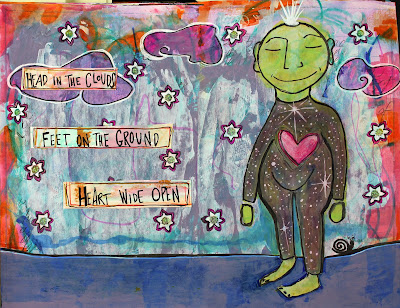 HEAD IN THE CLOUDS
FEET ON THE GROUND
HEART WIDE OPEN